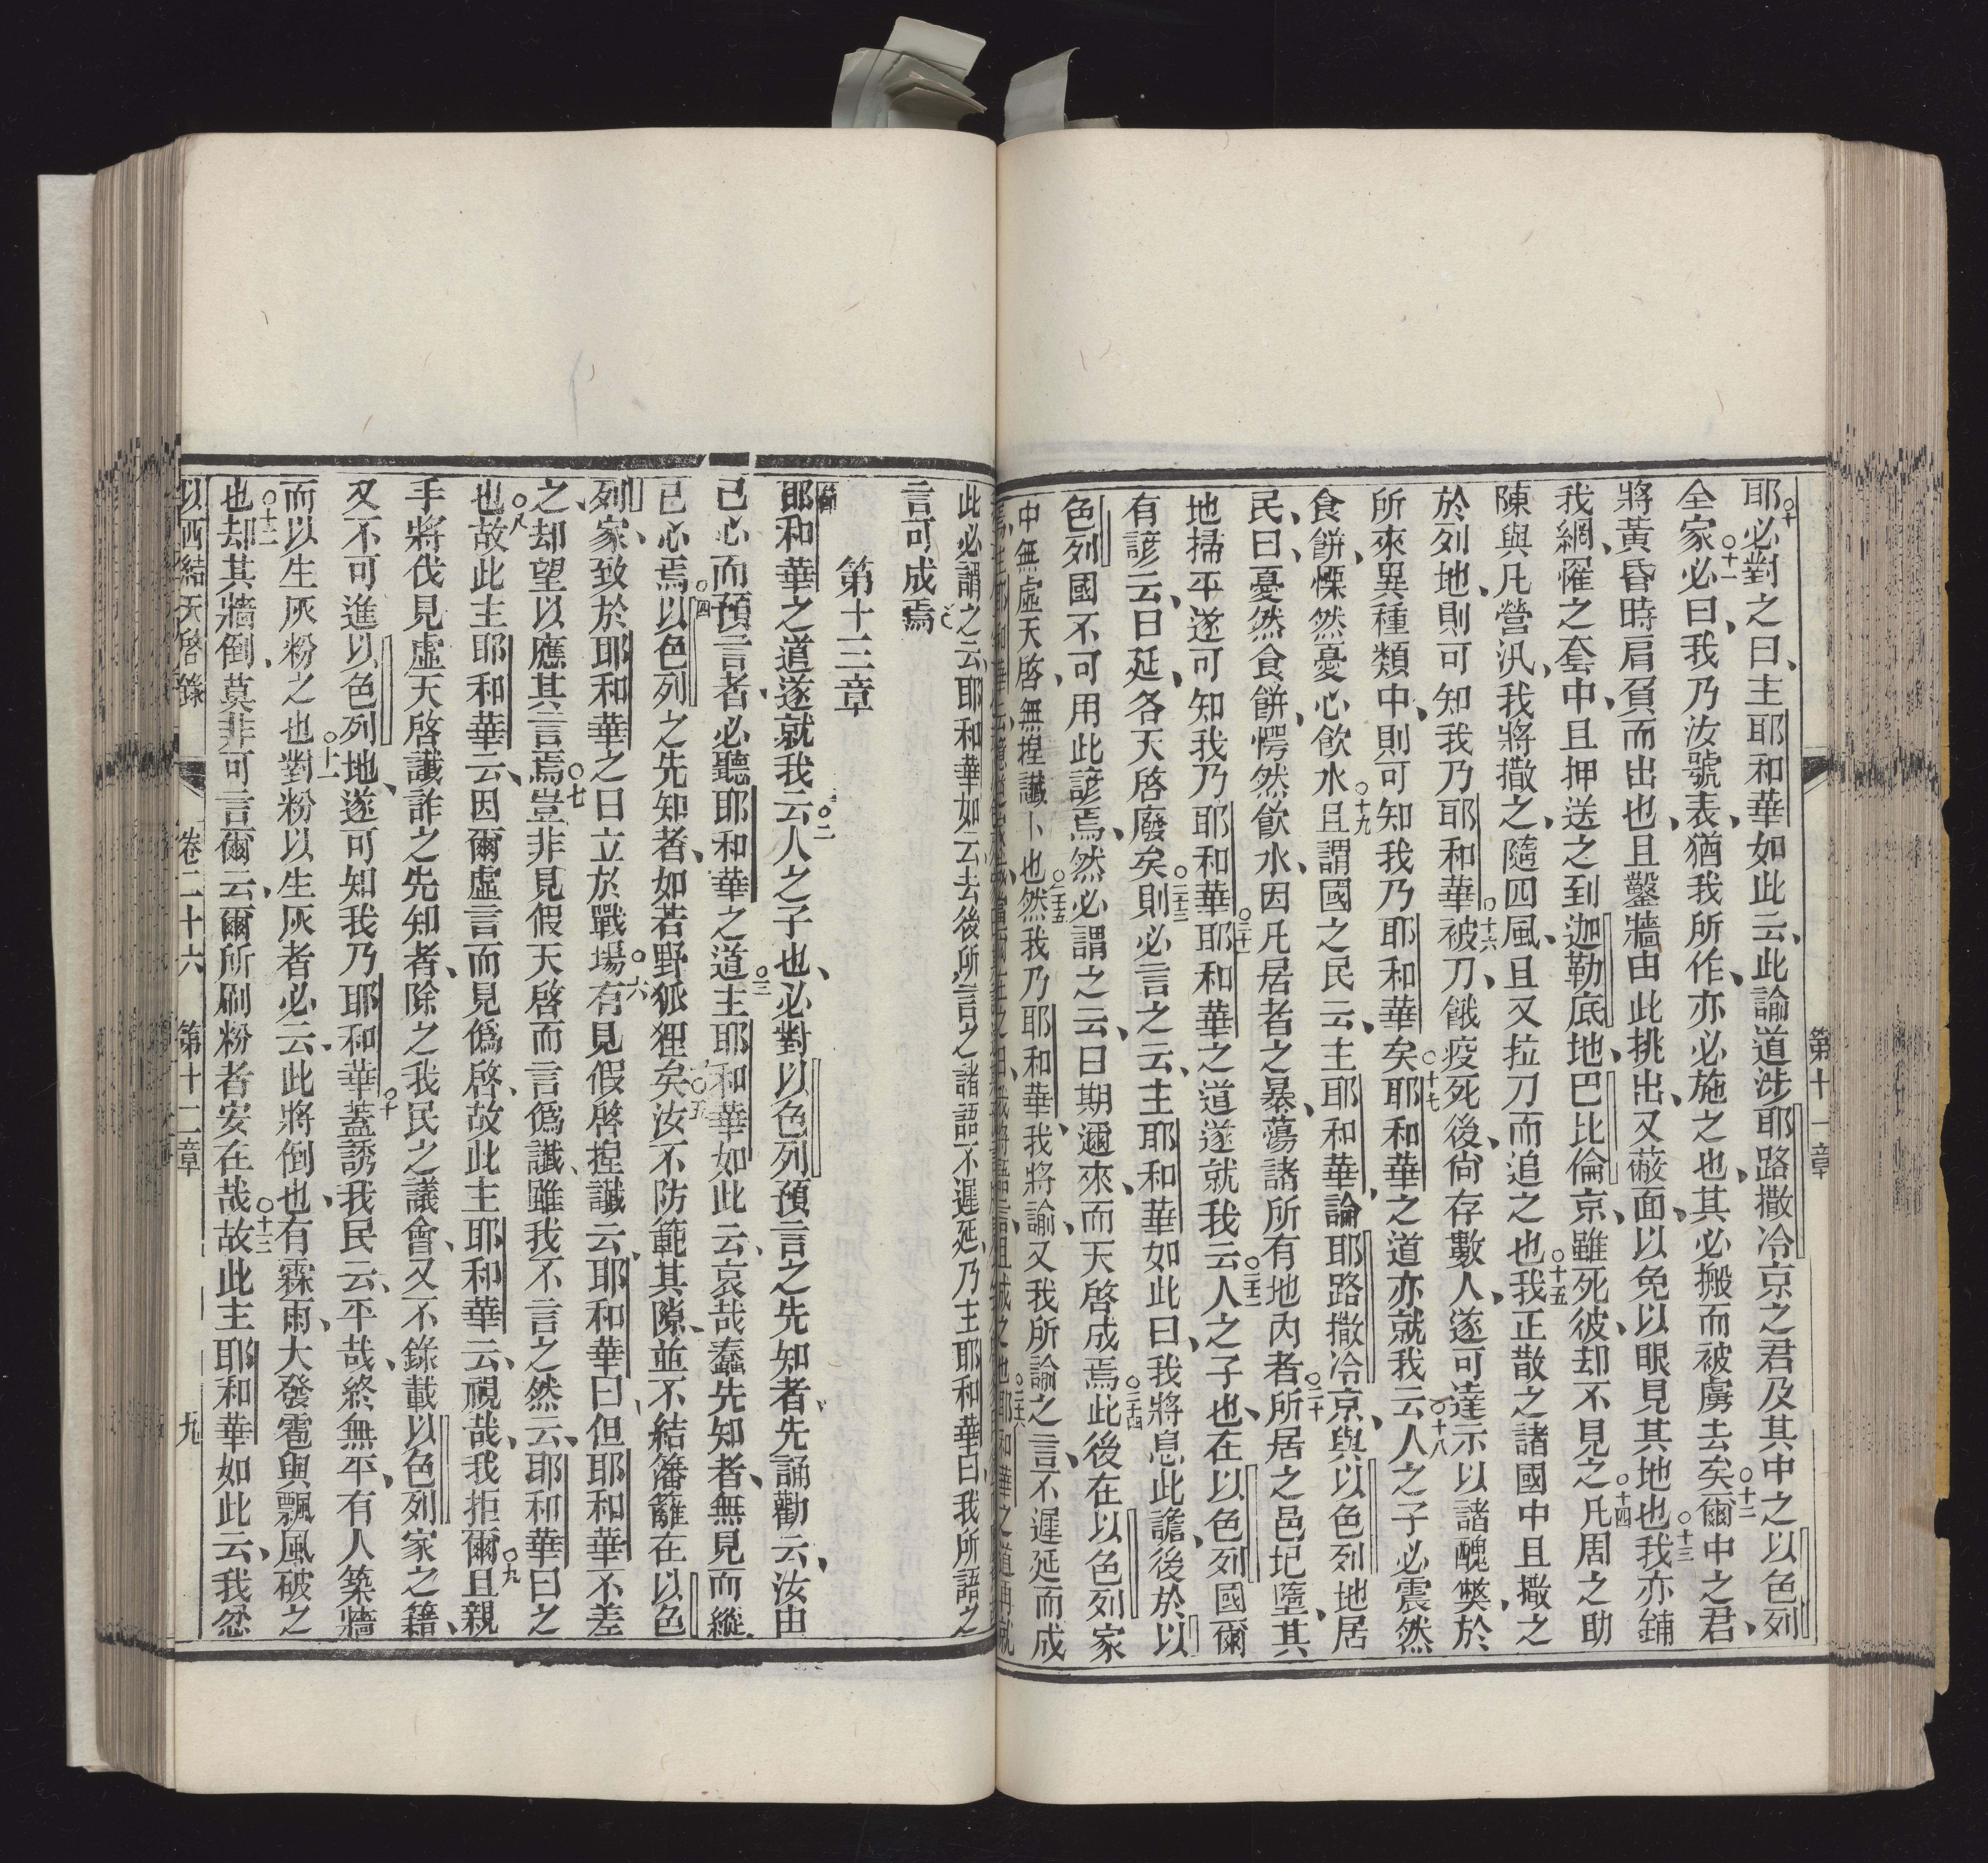 第十一章
耶必對之曰、主耶和華如此云、此諭道涉耶路撒冷京之君及其中之以色列
全家○十一必曰、我乃汝號表、猶我所作、亦必施之也、其必搬而被虜去矣○十二爾中之君、
將黃昏時肩負而出也、且鑿牆由此挑出、又蔽面、以免以眼見其地也○十三我亦鋪
我網、罹之套中、且押送之到迦勒底地、巴比倫京、雖死彼、却不見之○十四凡周之助
陳與凡營汎、我將撒之、隨四風、且又拉刀而追之也○十五我正散之諸國中且撒之
於列地、則可知我乃耶和華○十六被刀、餓疫死後、尙存數人、遂可達示以諸醜獘、於
所來異種類中、則可知我乃耶和華矣○十七耶和華之道亦就我云○十八人之子必震然
食餅、慄然憂心飲水○十九且謂國之民云、主耶和華論耶路撒冷京、與以色列地居
民、曰、憂然食餅、愕然飲水、因凡居者之暴、蕩諸所有地內者○二十所居之邑圮墮、其
地掃平遂可知我乃耶和華○二十一耶和華之道遂就我云○二十二人之子也、在以色列國爾
有諺云、日延、各天啓廢矣○二十三則必言之云、主耶和華如此曰、我將息此譫、後於以
色列國不可用此諺焉、然必謂之云、日期邇來、而天啓成焉○二十四此後在以色列家
中無虛天啓、無揑讖卜也○二十五然我乃耶和華、我將諭、又我所諭之言、不遲延而成
此必謂之云、耶和華如云、去後所言之諸語不遲延、乃主耶和華曰、我所語之
言可成焉
第十三章
耶和華之道遂就我云○二人之子也、必對以色列預言之先知者先誦勸云、汝由
己心而預言者、必聽耶和華之道○三主耶和華如此云、哀哉蠢先知者、無見而縱
己心焉○四以色列之先知者、如若野狐狸矣○五汝不防範其隙、並不結籓籬在以色
列家、致於耶和華之日立於戰場○六有見假啓揑讖云、耶和華曰、但耶和華不差
之、却望以應其言焉○七豈非見假天啓而言僞讖、雖我不言之然云、耶和華曰之
也○八故此主耶和華云、因爾虛言而見僞啓、故此主耶和華云、視哉、我拒爾○九且親
手將伐見虛天啓讖詐之先知者、除之我民之議會、又不錄載以色列家之籍、
又不可進以色列地、遂可知我乃耶和華○十蓋誘我民云、平哉、終無平、有人築牆
而以生灰粉之也○十一對粉以生灰者必云、此將倒也、有霖雨、大發雹與飄風破之
也○十二却其牆倒、莫非可言爾云、爾所刷粉者安在哉○十三故此主耶和華如此云、我忿
以西結天啓錄 卷二十六 第十二章 九